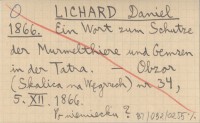 O LICHARD Daniel
1866. Ein Wort zum Schutze
der Murmelthiere und Gemsen
in der Tatra. — Obzor
(Skalica na Węgrzech) nr 34,
5. XII. 1866.
Po niemiecku?